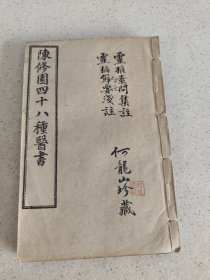 陳修園四十八種醫書
靈樞素問集註
靈樞節要淺註
何龍山珍藏